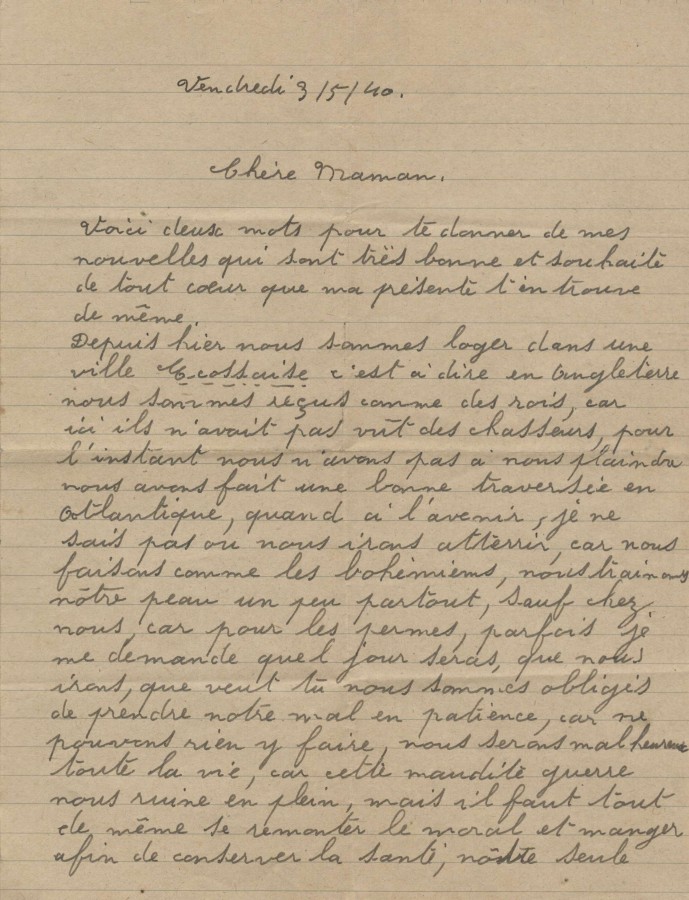 Vendredi 3/5/40.
Chère Maman.
Voici deux mots pour te donner de mes
nouvelles qui sont très bonne et souhaite
de tout cœur que ma présente t'en trouve
de même.
Depuis hier nous sommes loger dans une
ville Ecossaise c'est à dire en Angleterre
nous sommes reçus comme des rois, car
ici ils n'avait pas vût des chasseurs, pour
l'instant nous n'avons pas à nous plaindre
nous avons fait une bonne traversée en
Atlantique, quand à l'avenir, je ne
sais pas ou nous irons attèrrir, car nous
faisons comme les bohèmiems, nous trainons
nôtre peau un peu partout, sauf chez
nous, car pour les permes, parfois je
me demande quel jour seras, que nous
irons, que veut tu nous sommes obligés
de prendre notre mal en patience, car ne
pouvons rien y faire, nous serons malheureux
toute la vie, car cette maudite guerre
nous ruine en plein, mais il faut tout
de même se remonter le moral et manger
afin de conserver la santé, nôtre seule